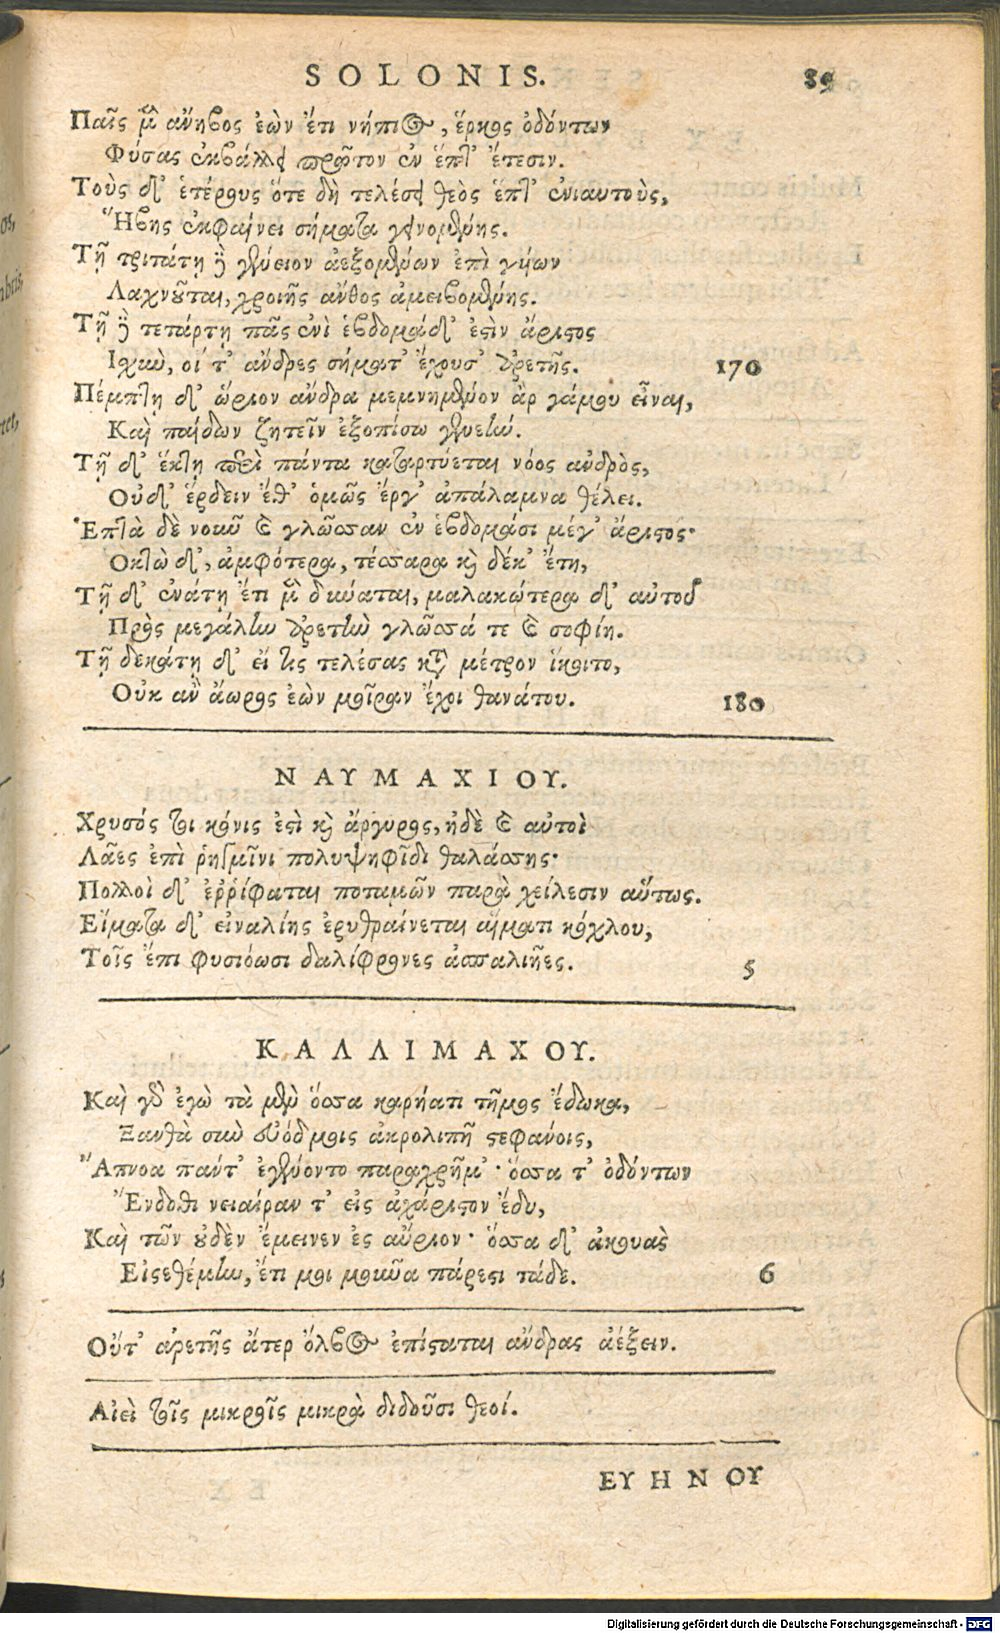 SOLONIS. 89
Παῖς μὲν ἄνηβος ἐὼν ἔτι νήπιος, ἕρκος ὀδόντων
Φύσας ἐκβάλλει πρῶτον ἐν ἕπτ' ἔτεσιν.
Τοὺς δ' ἑτέρους ὅτε δὴ τελέσει θεὸς ἕπτ' ἐνιαυτοὺς,
Ἥβης ἐκφαίνει σήματα γεινομένης.
Τῇ τριτάτῃ δὲ γένειον ἀεξομένων ἐπὶ γυίων
Λαχνοῦται, χροιῆς ἄνθος ἀμειβομένης.
Τῇ δὲ τετάρτῃ πᾶς ἐνὶ ἑβδομάδ' ἐστὶν ἄριστος
Ισχὺν, οἵ τ' ἄνδρες σήματ' ἔχουσ' ἀρετῆς. 170
Πέμπτῃ δ' ὥριον ἄνδρα μεμνημένον ἂρ γάμου εἶναι,
Καὶ παίδων ζητεῖν ἐξοπίσω γενεήν.
Τῇ δ' ἕκτῃ περὶ πάντα καταρτύεται νόος ἀνδρὸς,
Οὐδ' ἕρδειν ἔθ' ὁμῶς ἔργ' ἀπάλαμνα θέλει.
Ἑπτὰ δὲ νοῦν καὶ γλῶσσαν ἐν ἑβδομάσι μέγ' ἄριστος·
Οκτὼ δ', ἀμφότερα, τέσσαρα καὶ δέκ' ἔτη,
Τῇ δ' ἐνάτῃ ἔτι μὲν δύναται, μαλακώτερα δ' αὐτοῦ
Πρὸς μεγάλην ἀρετὴν γλῶσσά τε καὶ σοφίη.
Τῇ δεκάτῃ δ' εἴ τις τελέσας κατὰ μέτρον ἵκοιτο,
Οὐκ ἂν ἄωρος ἐὼν μοῖραν ἔχοι θανάτου. 180
ΝΑΥΜΑΧΙΟΥ.
Χρυσός τοι κόνις ἐστὶ καὶ ἄργυρος, ἠδὲ καὶ αὐτοὶ
Λᾶες ἐπὶ ῥηγμῖνι πολυψηφῖδι θαλάσσης·
Πολλοὶ δ' ἐῤῥίφαται ποταμῶν παρὰ χείλεσιν αὕτως.
Εἵματα δ' εἰναλίης ἐρυθραίνεται αἵματι κόχλου,
Τοῖς ἔπι φυσιόωσι δαλίφρονες ἀσπαλιῆες. 5
ΚΑΛΛΙΜΑΧΟΥ.
Καὶ γὰρ ἐγὼ τὰ μὲν ὅσσα καρήατι τῆμος ἔδωκα,
Ξανθὰ σὺν εὐόδμοις ἁκρολιπῆ στεφάνοις,
Ἄπνοα πάντ' ἐγένοντο παραχρῆμ'· ὅσσα τ' ὀδόντων
Ἔνδοθι νειαίραν τ' εἰς ἀχάριστον ἔδυ,
Καὶ τῶν οὐδὲν ἔμεινεν ἐς αὔριον· ὅσσα δ' ἀκουαῖς
Εἰσεθέμην, ἔτι μοι μοῦνα πάρεστι τάδε. 6
Οὔτ' ἀρετῆς ἄτερ ὄλβος ἐπίσταται ἄνδρας ἀέξειν.
Αἰεὶ τοῖς μικροῖς μικρὰ διδοῦσι θεοί.
ΕΥΗΝΟΥ
Digitalisierung gefördert durch die Deutsche Forschungsgemeinschaft - DFG